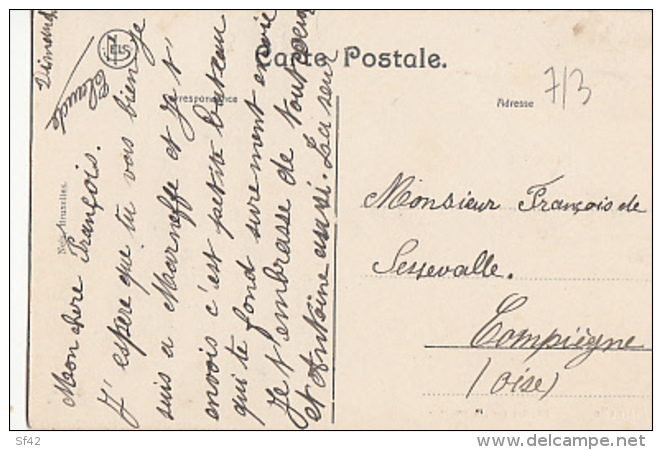 Carte Postale.
Correspondance
Adresse
7/3
Dimanche
Mon chere François.
J'espere que tu vas bien je
suis a Marneffe et je t
envois c'est petite bateau
qui te fond surement envie
Je t'embrasse de tout
et Antoine aussi. La seur
Claude
Monsieur François de
Sessevalle.
Compiègne
(Oise)
Nels, Bruxelles.
Sf42
delcampe.net